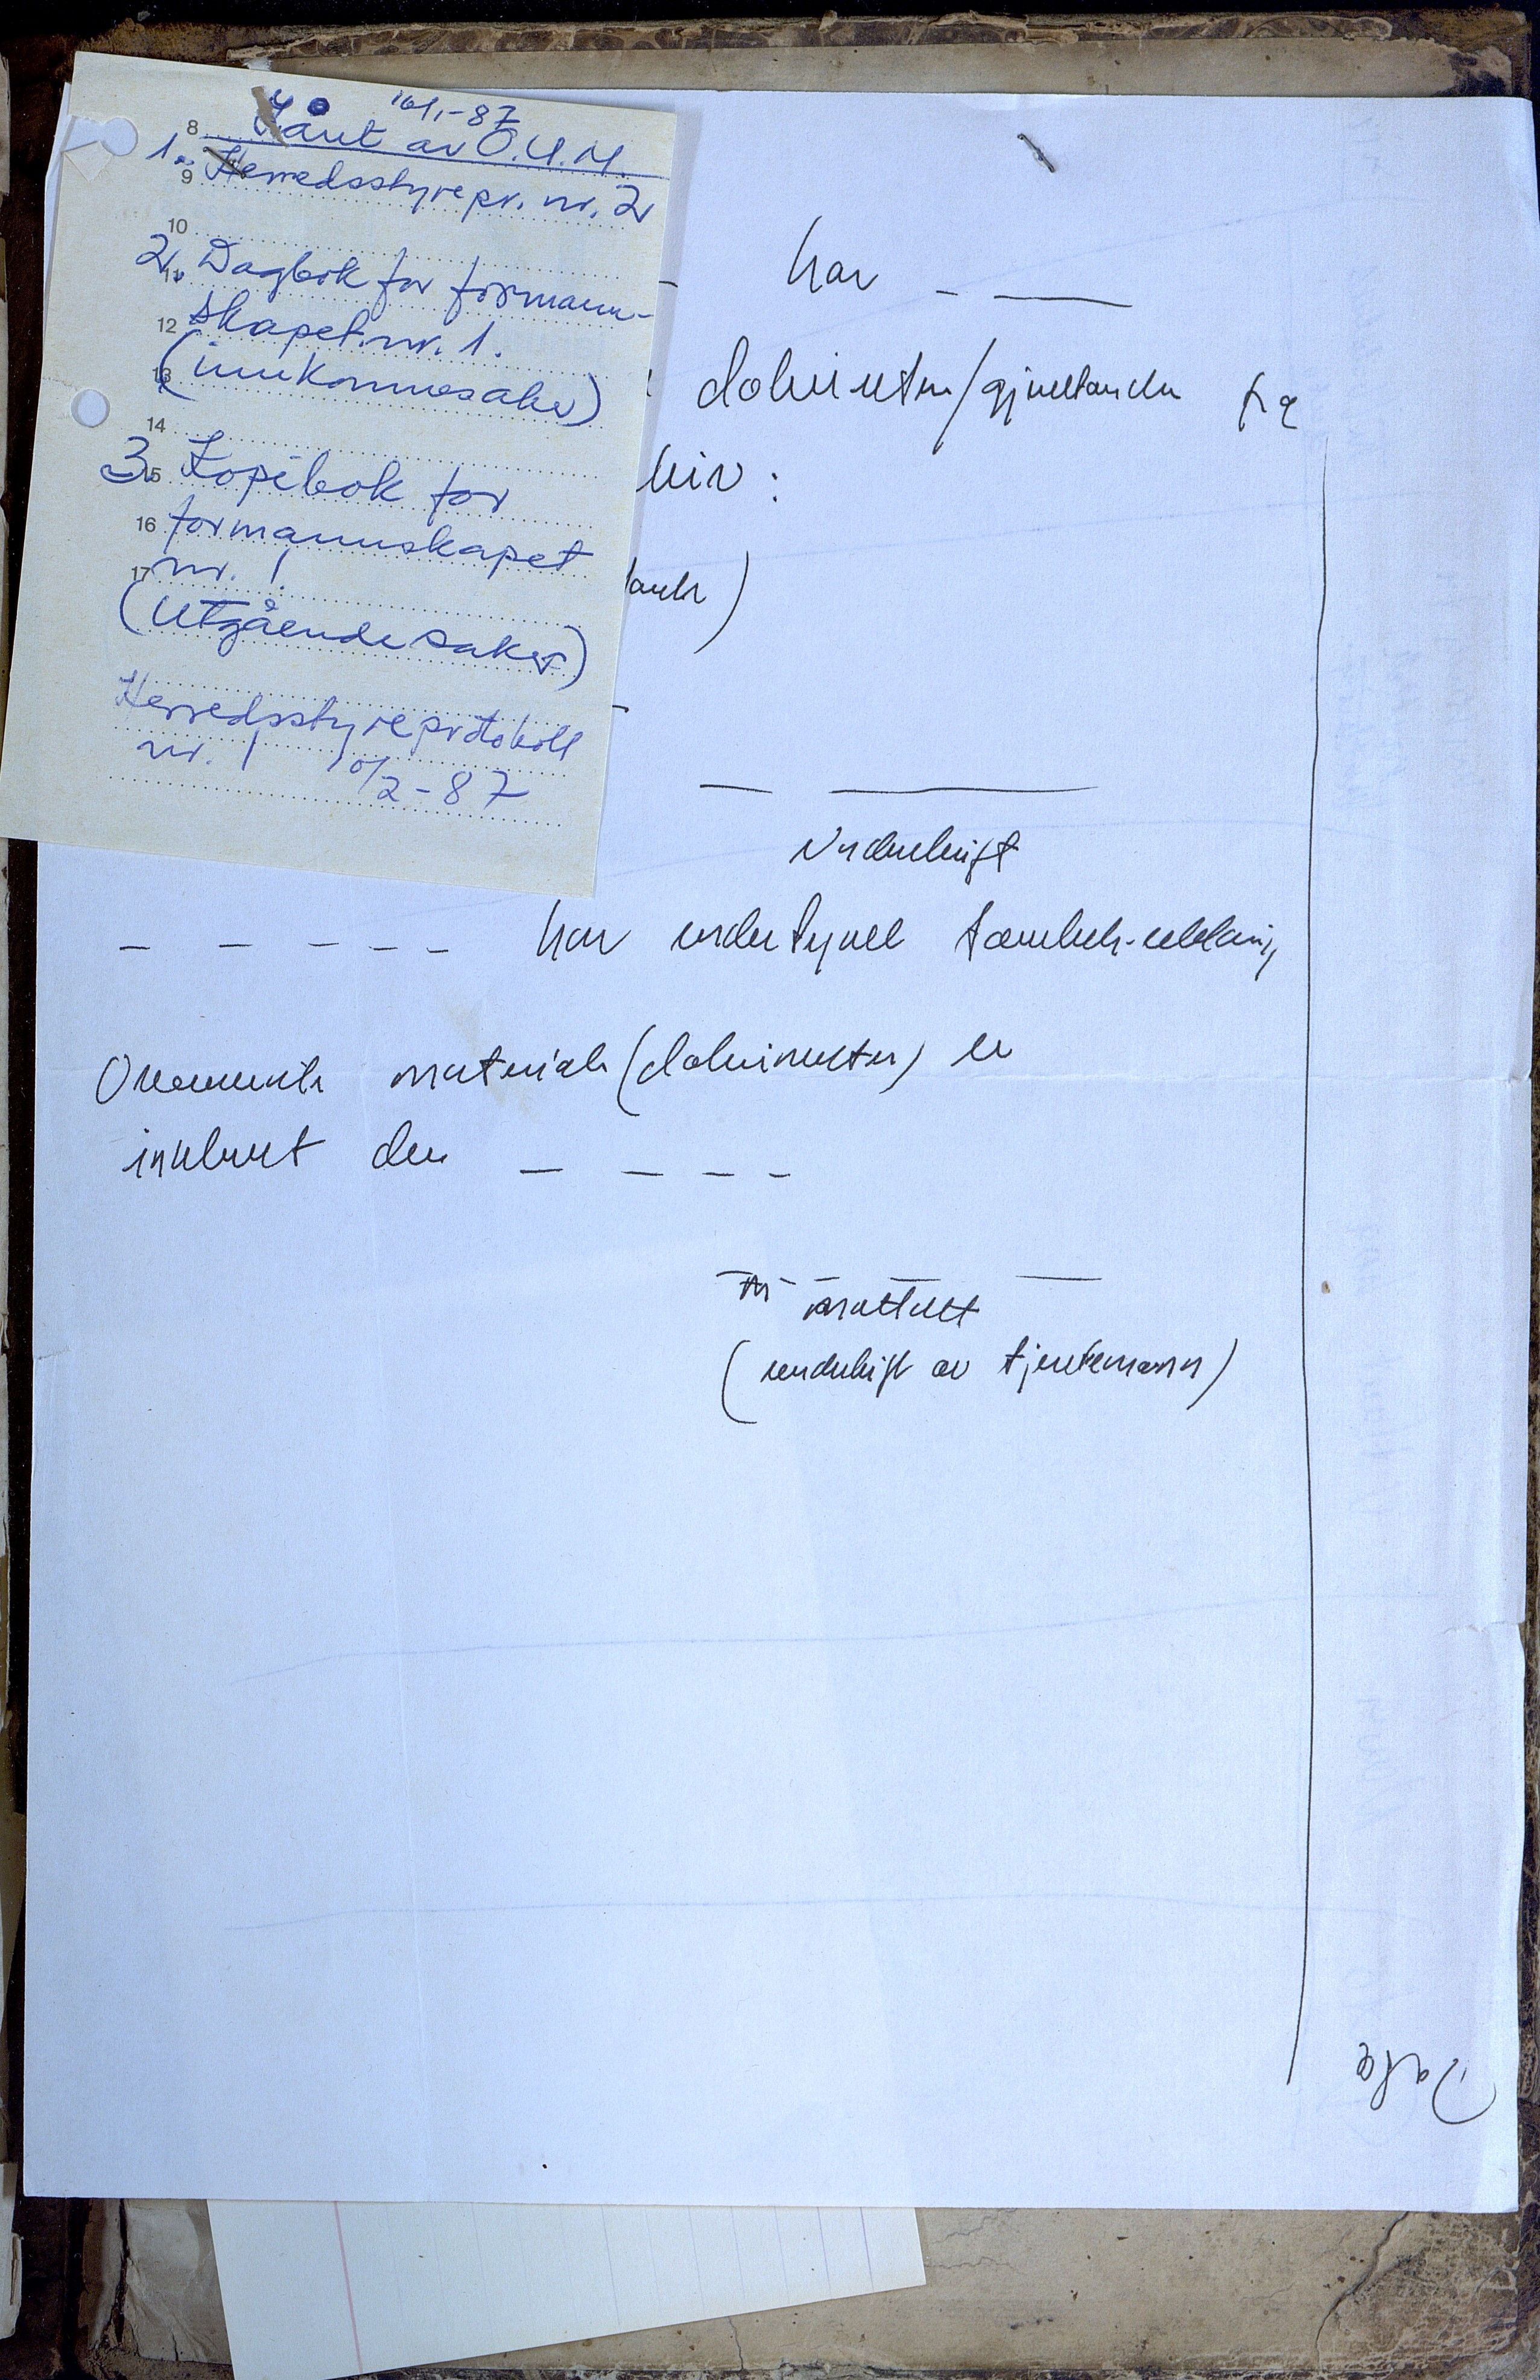 16/1-87
Lånt av O.U.M.
8
1. Herredsstyrepr. nr. 2
9
10
2. Dagbok for formann-
11
skapet nr. 1.
12
(innkomnesaker)
13
14
3. Kopibok for
15
formannskapet
16
nr. 1.
17
(Utgående saker)
Herredsstyreprotokoll
nr. 1 10/2-87
har _ _
dokumenter/gjenstander fra
kiv:
)
Underskrift
_ _ _ _ _ har undertegnet
Ovennevnte materiale (dokumenter) er
innlevert den _ _ _ _
mottatt
(underskrift av tjenestemann)
Dato